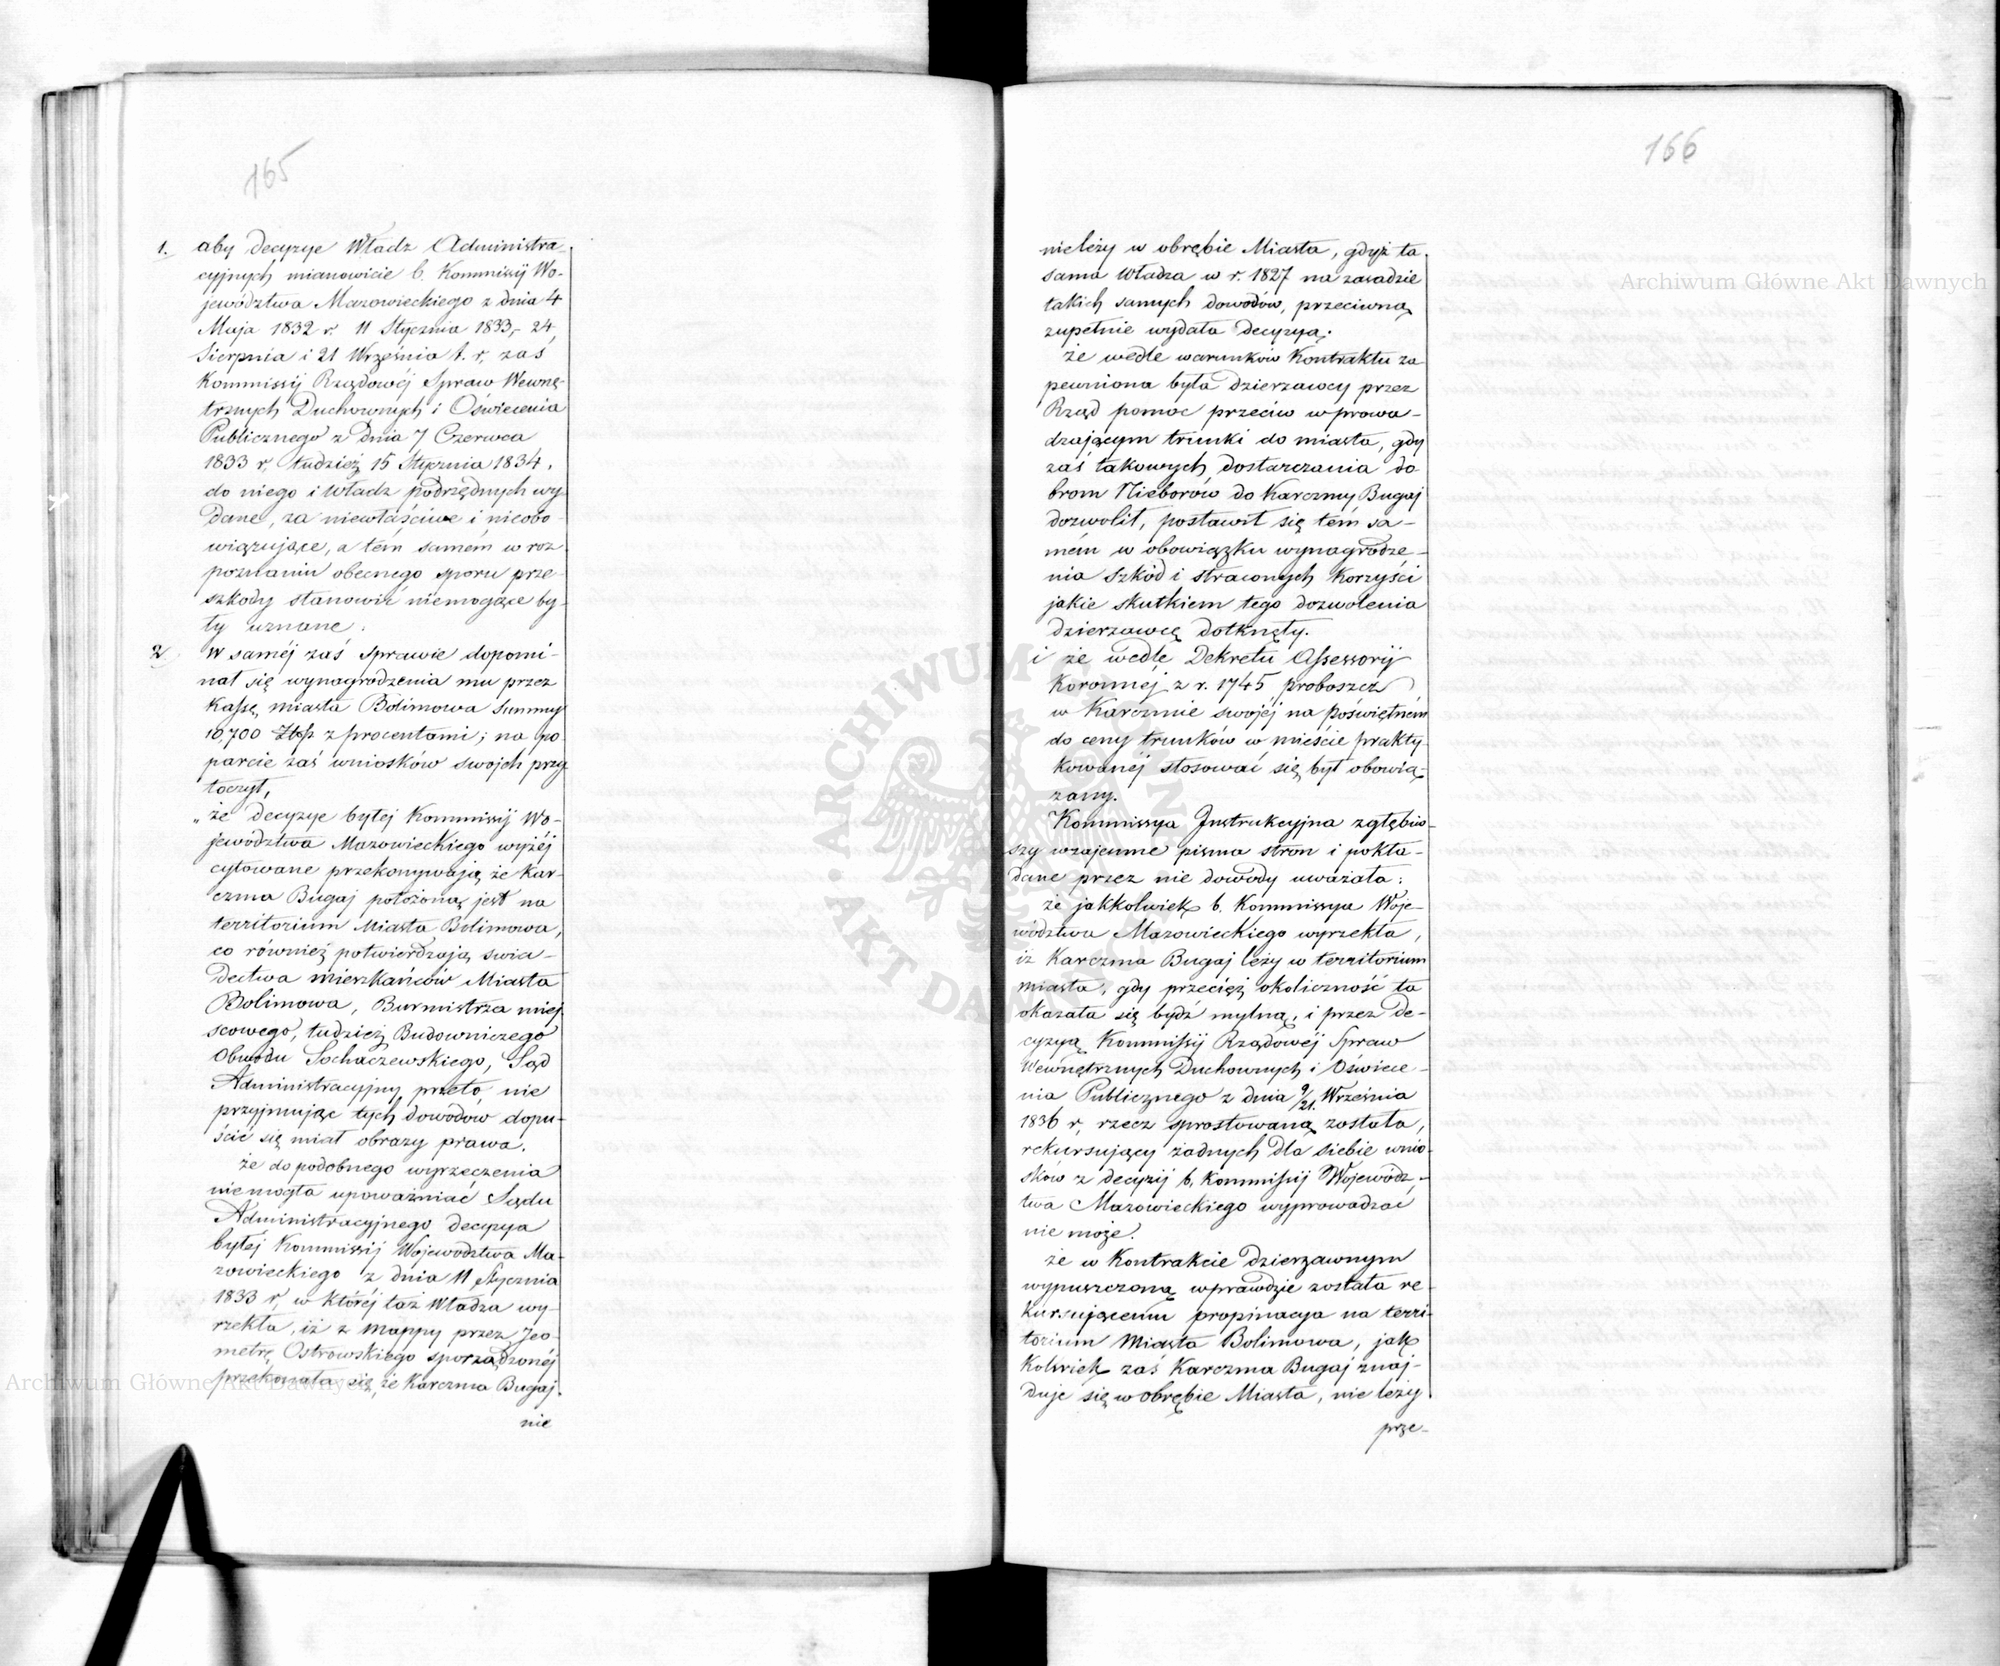 165
1. aby decyzye Władz Administra-
cyjnych mianowicie b. Kommissyi Wo-
jewództwa Mazowieckiego z dnia 4
Maja 1832 r. 11 Stycznia 1833, 24
Sierpnia i 21 Września t. r, zaś
Kommissij Rządowéj Spraw Wewnę-
trznych Duchownych i Oświecenia
Publicznego z dnia 7 Czerwca
1833 r, tudzież 15 Stycznia 1834,
do niego i władz podrzędnych wy
dane, za niewłaściwe i nieobo-
wiązujące, a tém samém w roz
poznaniu obecnego sporu prze-
szkody stanowić niemogące by-
ły uznane.
2. W saméj zaś sprawie dopomi-
nał się wynagrodzenia mu przez
Kassę miasta Bolimowa Summy
10,700 Złp z procentami; na po-
parcie zaś wniosków swojch przy
toczył,
„ że decyzye byłej Kommissyj Wo-
jewództwa Mazowieckiego wyżéj
cytowane przekonywają że Kar-
czma Bugaj położoną jest na
territorium Miasta Bolimowa,
co również potwierdzają świa-
dectwa mieszkańców Miasta
Bolimowa, Burmistrza miej
scowego, tudzież Budowniczego
Obwodu Sochaczewskiego, Sąd
Administracyjny przeto, nie
przyjmując tych dowodów dopu-
ścić się miał obrazy prawa.
że do podobnego wyrzeczenia
niemogła upoważniać Sądu
Administracyjnego decyzya
byłej Kommissij Województwa Ma-
zowieckiego z dnia 11 Stycznia
1833 r, w któréj taż władza wy-
rzekła, iż z mappy przez Jeo-
metrę Ostrowskiego sporządzonéj
przekonała się, że Karczma Bugaj
nie
166
nieleży w obrębie Miasta, gdyż ta
sama Władza w r. 1827 na zasadzie
takich samych dowodów, przeciwną
zupełnie wydała decyzyą;
że wedle warunków Kontraktu za
pewniona była dzierzawcy przez
Rząd pomoc przeciw wprowa-
dzającym trunki do miasta, gdy
zaś takowych dostarczania do
brom Nieborów do Karczmy Bugaj
dozwolił, postawił się tém sa-
mém w obowiązku wynagrodze-
nia szkód i straconych Korzyści
jakie skutkiem tego dozwolenia
dzierzawcę dotknęły.
i że wedle Dekretu Assessorij
Koronnéj z r. 1745 proboszcz
w Karczmie swojéj na poświętném
do ceny trunków w mieście prakty-
kowanéj stosować się był obowią-
zany.
Kommissya Instrukcyjna zgłębiw-
szy wzajemne pisma stron i pokła-
dane przez nie dowody uważała:
że jakkolwiek b. Kommissya Woje-
wództwa Mazowieckiego wyrzekła,
iż Karczma Bugaj leży w territorium
miasta, gdy przecież okoliczność ta
okazała się bydź mylną, i przez de-
cyzyą Kommissij Rządowéj Spraw
Wewnętrznych Duchownych i Oświece-
nia Publicznego z dnia 9/21. Września
1836 r, rzecz sprostowaną została,
rekursujący żadnych dla siebie wnio-
sków z decyzij b. Kommissij Wojewódz-
twa Mazowieckiego wyprowadzać
nie może.
że w Kontrakcie dzierzawnym
wypuszczoną wprawdzie została re-
kursującemu propinacya na terri-
torium Miasta Bolimowa, jak
kolwiek zaś Karczma Bugaj znaj-
duje się w obrębie Miasta, nie leży
prze-
Archiwum Główne Akt Dawnych
Archiwum Główne Akt Dawnych
ARCHIWUM GŁÓWNE AKT DAWNYCH